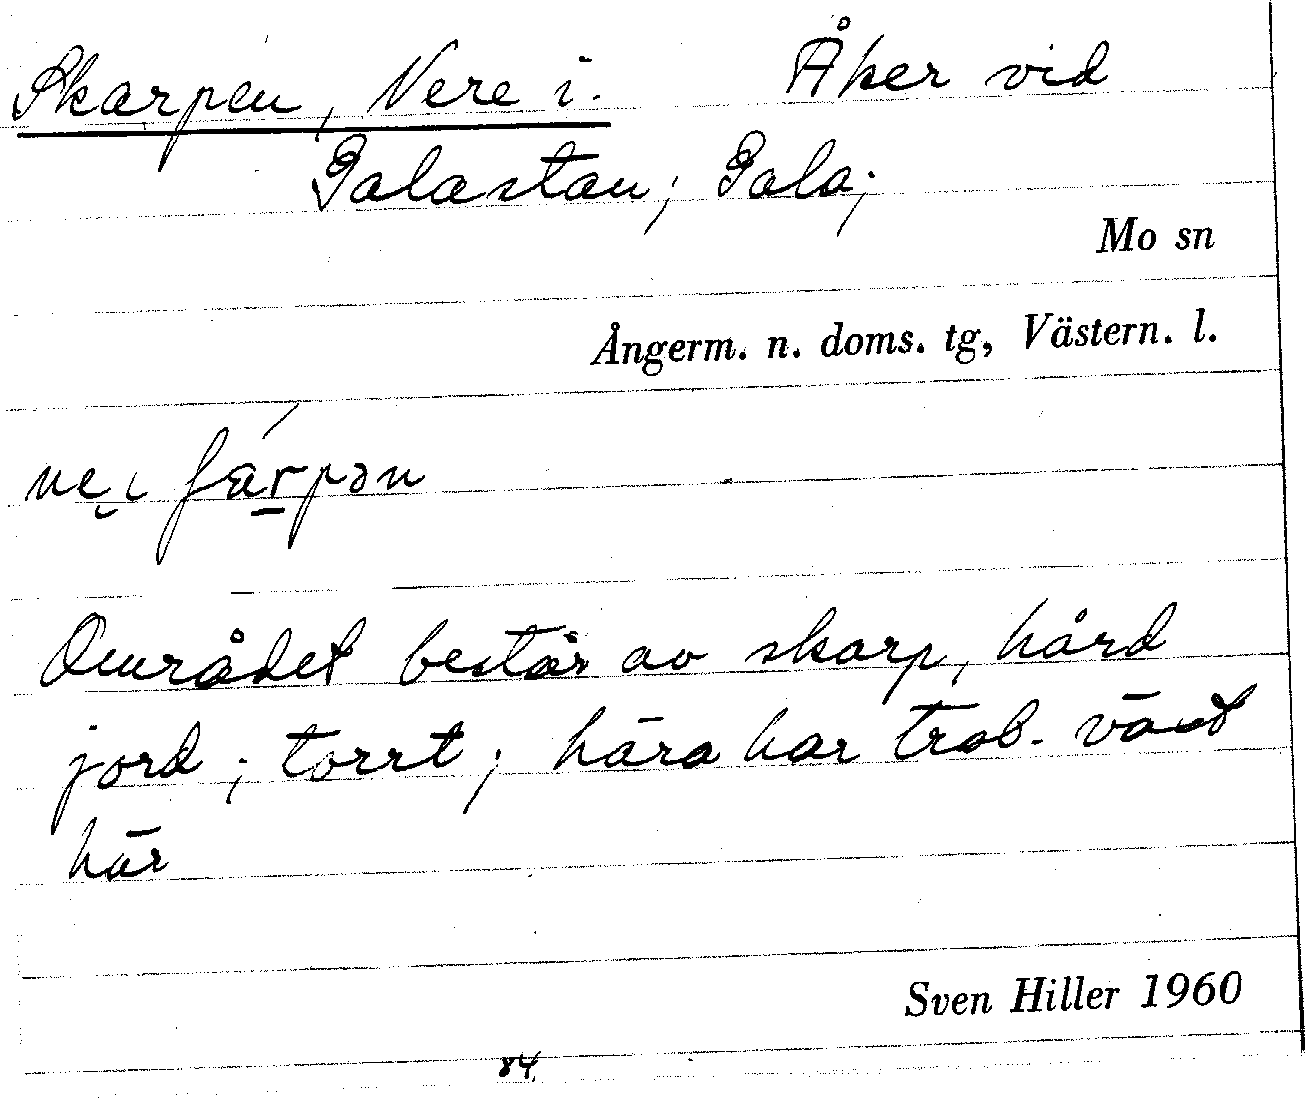 Skarpen, Nere i. Åker vid
Galastan; Gala;
Mo sn
Ångerm. n. doms. tg, Västern. l.
ne i
Området består av skarp, hård
jord; torrt; håra har trol. växt
här
Sven Hiller 1960
84